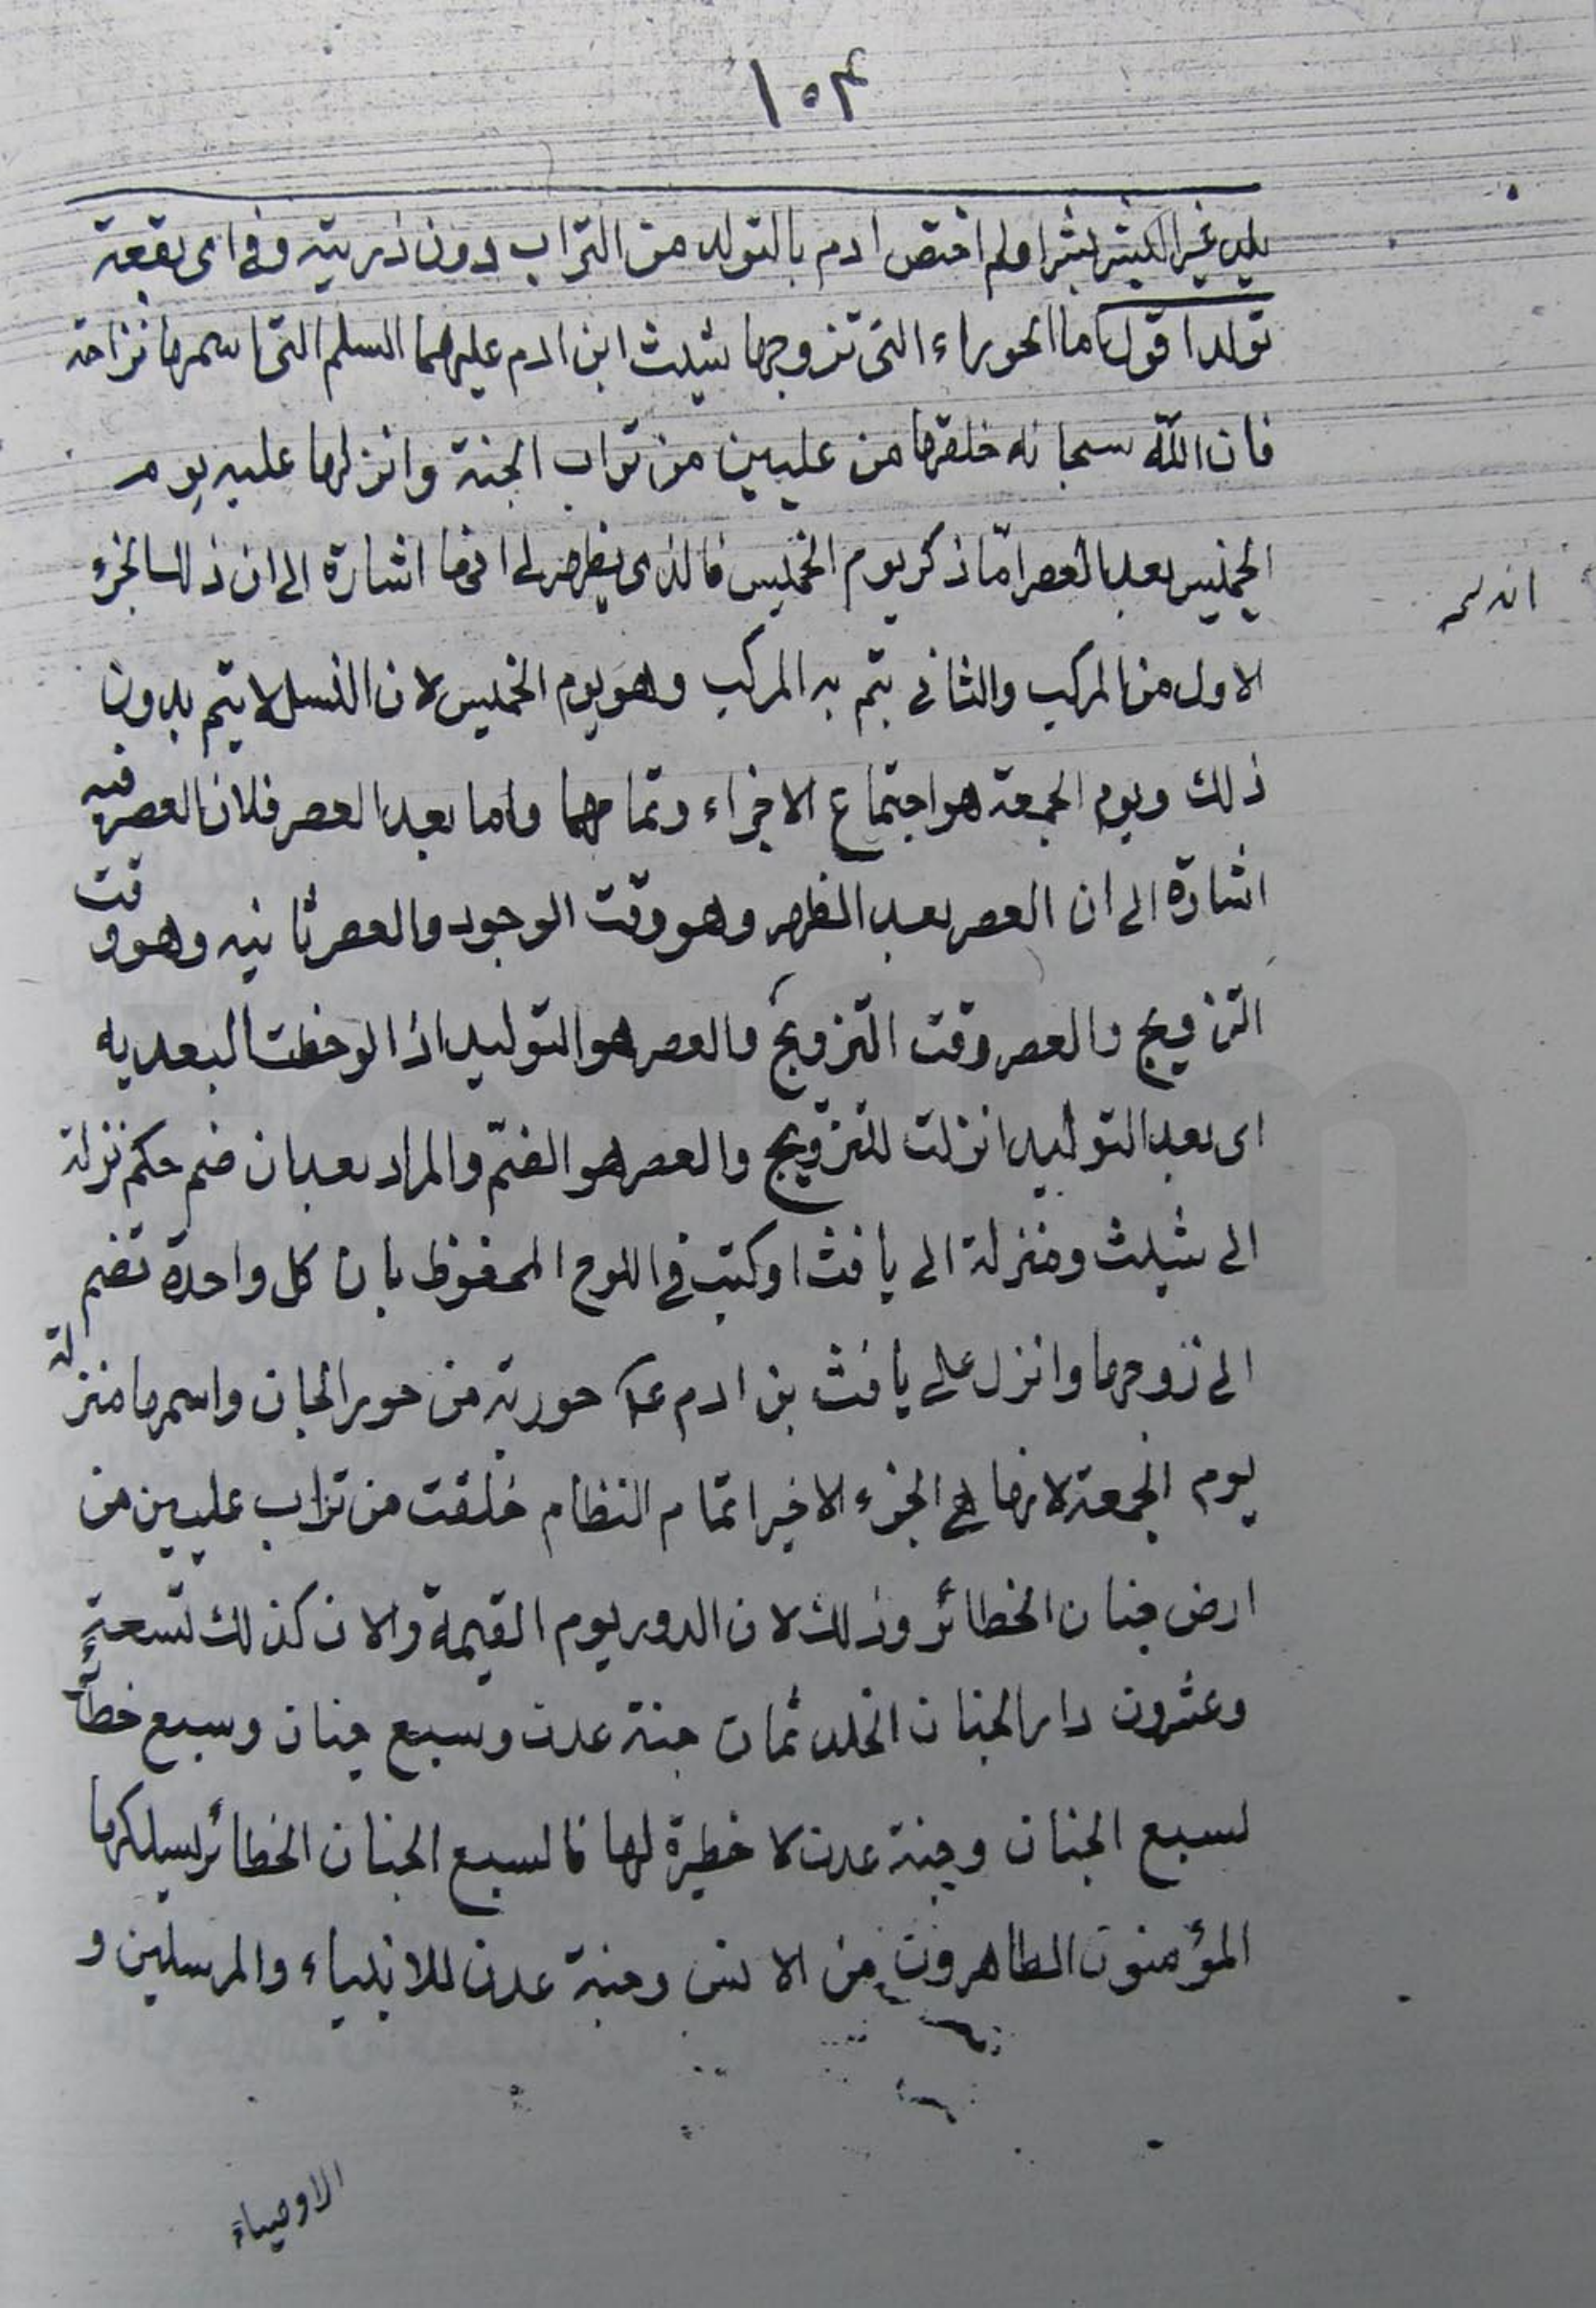 ١٥٣
يلد غير البشر بشرا ولم اختص ادم بالتولد من التراب دون ذريته وفي اى بقعة
تولد اقول اما الحوراء التى تزوجها شيث ابن ادم عليهما السلم التى اسمها نزلة
فان الله سبحانه خلقها من عليين من تراب الجنة وانزلها عليه يوم
الخميس بعد العصر امّا ذكر يوم الخميس فالذى يظهر لى انها اشارة الى ان ذلك الجزء
انه لسر
الاول من المركب والثانى يتم به المركب وهو يوم الخميس لان النسل لا يتم بدون
ذلك ويوم الجمعة هو اجتماع الاجزاء وتمامها واما بعد العصر فلان العصر فيه
اشارة الى ان العصر بعد الظهر وهو وقت الوجود والعصر ثانيه وهو وقت
التزويج والعصر وقت التزويج والعصر هو التوليد اذا لوحظت البعديه
اى بعد التوليد انزلت للتزويج والعصر هو الضمّ والمراد بعد ان ضم حكم نزلة
الى شيث ومنزلة الى يافث او كتب فى اللوح المحفوظ بان كل واحدة تضم
الى زوجها وانزل على يافث بن ادم ع حورية من حور الجان واسمها منزلة
يوم الجمعة لانها هى الجزء الاخير اتمام النظام خلقت من تراب عليين من
ارض جنان الخطائر وذلك لان الدور يوم القيمة والان كذلك تسعة
وعشرون دار الجنان الخلد ثمان جنة عدن وسبع جنان وسبع خطائر
لسبع الجنان وجنة عدن لا خطيرة لها فالسبع الجنان الخطائر يسلكها
المؤمنون الطاهرون من الانس وجنة عدن للانبياء والمرسلين و
الاوصياء